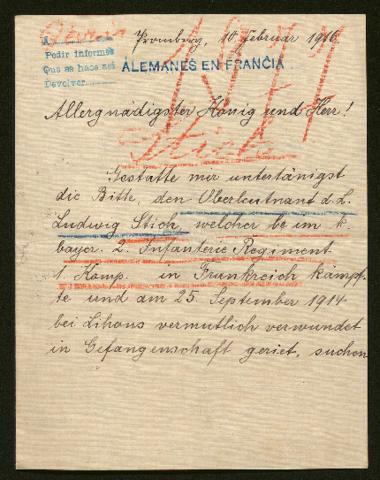 Promberg, 10 februar 1916.
A
Pedir informes
Que se hace así
Devolver
ALEMANES EN FRANCIA
Allergnädigster König und Herr!
Stich
Gestatte mir untertänigst
die Bitte, den Oberleutnant d. L.
Ludwig Stich, welcher beim k.
bayer. 2. Infanterie Regiment
1 Komp. in Frankreich kämpf-
te und am 25. September 1914
bei Lihons vermutlich verwundet
in Gefangenschaft geriet, suchen